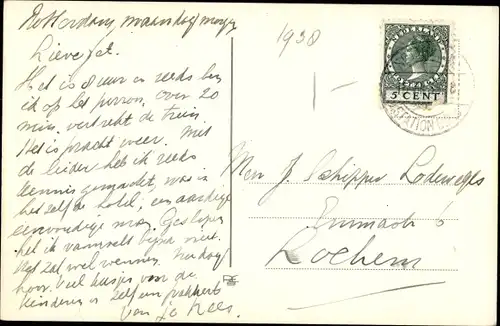 Rotterdam, maandag morgen
Lieve Jet.
Het is 8 uur en reeds ben
ik op het perron, over 20
min. vertrekt de trein.
Het is pracht weer. Met
de leider heb ik reeds
kennis gemaakt, was in
het zelfde hotel, een aardige
eenvoudige man. Geslapen
heb ik vannacht bijna niet.
Het zal wel wennen.
hoor. Veel kusjes voor de
kinderen en zelf een pakkerd
van je Kees.
1938
1-
NEDERLAND
5 CENT
STATION
Mevr J. Schipper Lodewegs
Emmastr 5
Lochem